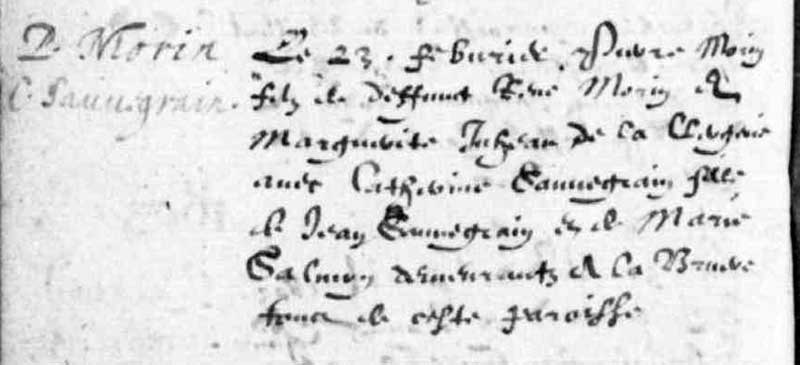 P. Morin
C. Sauvegrain.
Le 23. febvrier Pierre Morin
filz de deffunct René Morin et
Marguerite de la
avec Catherine Sauvegrain fille
de Jean Sauvegrain et de Marie
Salmon demeurantz a la Bruere
touct de ceste paroisse